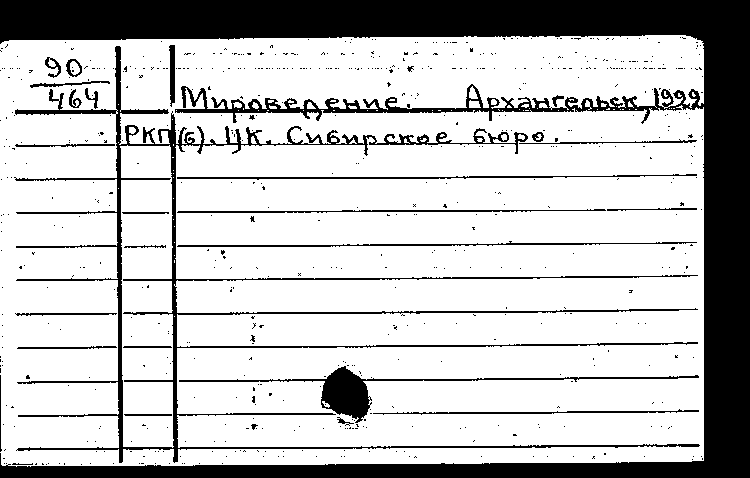 90
464
Мироведение. Архангельск, 1922
РКП(б). ЦК. Сибирское бюро.